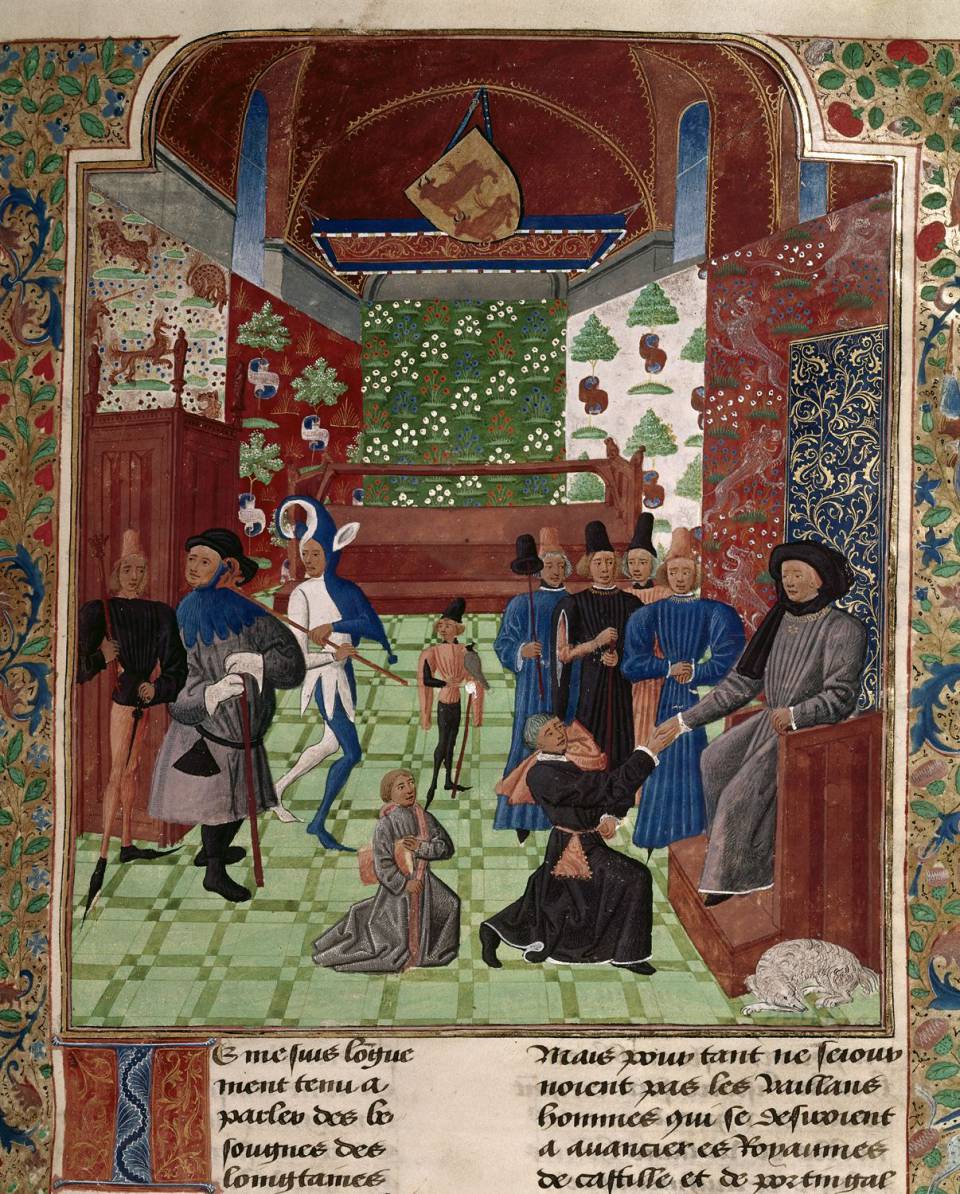 Ie me suis lõgue
ment tenu a
parler des be
songnes des
longtaines
Mais pour tant ne seiour
noient pas les vaillans
hommes qui se desiroient
a auancier es Royaumes
de castille et de portingal